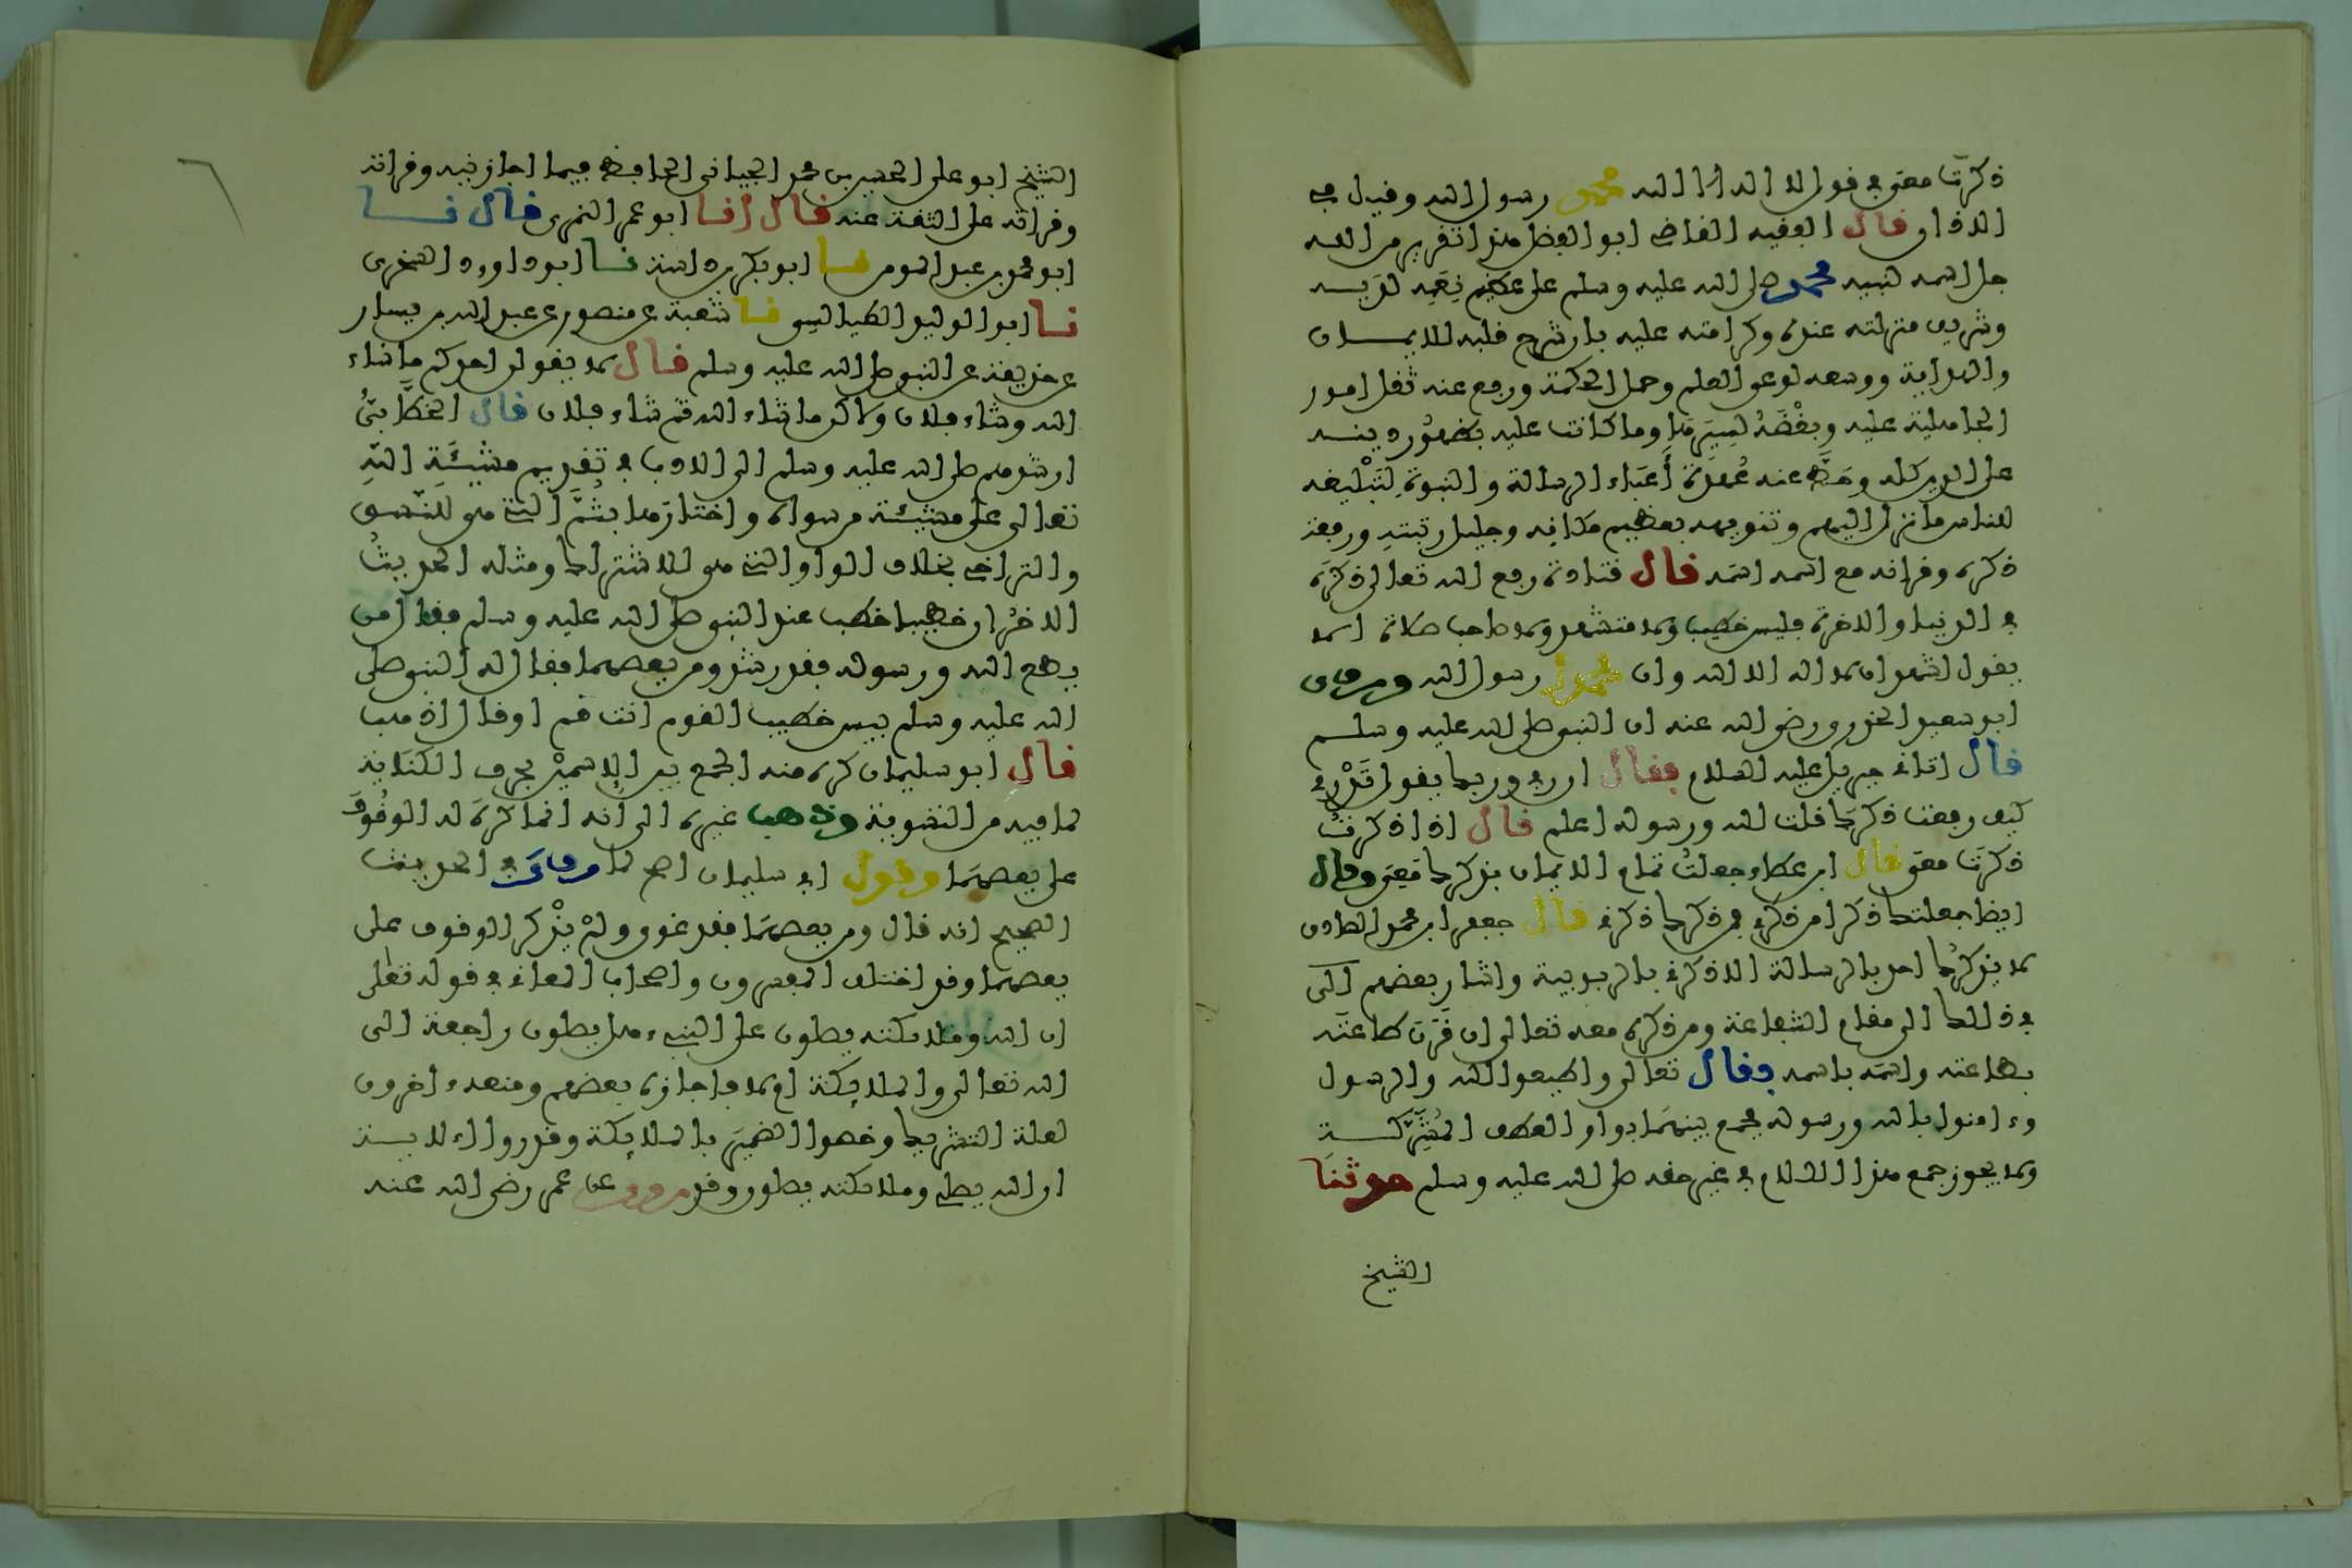 ذكرت معي في قول لا اله الا الله محمد رسول الله وقيل في
الاذان قال الفقيه القاضي ابو الفضل هذا تقرير من الله
جل اسمه لنبيه محمد صلى الله عليه وسلم على عظيم نعمه لديه
وشريف منزلته عنده وكرامته عليه بان شرح قلبه للايمان
والهداية ووسعه لوعي العلم وحمل الحكمة ورفع عنه ثقل امور
الجاهلية عليه وبغضه لسيرها وما كانت عليه بظهور دينه
على الدين كله وحط عنه عهدة أعباء الرسالة والنبوة لتبليغه
للناس ما نزل اليهم وتنويهه بعظيم مكانه وجليل رتبته ورفعة
ذكره وقرانه مع اسمه اسمه قال قتادة رفع الله تعالى ذكره
في الدنيا والاخرة فليس خطيب ولا متشهد ولا صاحب صلاة الا
يقول اشهد ان لا اله الا الله وان محمدا رسول الله وروى
ابو سعيد الخدري رضي الله عنه ان النبي صلى الله عليه وسلم
قال اتاني جبريل عليه السلام فقال ان ربي وربك يقول تدري
كيف رفعت ذكرك قلت الله ورسوله اعلم قال اذا ذكرت
ذكرت معي قال ابن عطاء جعلت تمام الايمان بذكرك معي وقال
ايضا جعلتك ذكرا من ذكري فمن ذكرك ذكرني قال جعفر ابن محمد الصادق
لا يذكرك احد بالرسالة الا ذكرني بالربوبية واشار بعضهم الى
في ذلك الى مقام الشفاعة ومن ذكره معه تعالى ان قرن طاعته
بطاعته واسمه باسمه فقال تعالى واطيعوا الله والرسول
وءامنوا بالله ورسوله فجمع بينهما بواو العطف المشركة
ولا يجوز جمع هذا الكلام في غير حقه صلى الله عليه وسلم حدثنا
الشيخ
الشيخ ابو علي الحسين بن محمد الجياني الحافظ فيما اجازنيه وقراته
وقراته على الثقة عنه قال أنا ابو عمر النمري قال نا
ابو محمد بن عبد المومن نا ابو بكر بن داسة نا ابو داوود السجزي
نا ابو الوليد الطيالسي نا شعبة عن منصور عن عبد الله بن يسار
عن حذيفة عن النبي صلى الله عليه وسلم قال لا يقولن احدكم ما شاء
الله وشاء فلان ولاكن ما شاء الله ثم شاء فلان قال الخطابي
ارشدهم صلى الله عليه وسلم الى الادب في تقديم مشيئة الله
تعالى على مشيئة من سواه واختارها بثم التي هي للنسق
والتراخي بخلاف الواو التي هي للاشتراك ومثله الحديث
الاخر ان خطيبا خطب عند النبي صلى الله عليه وسلم فقال من
يطع الله ورسوله فقد رشد ومن يعصهما فقال له النبي صلى
الله عليه وسلم بيس خطيب القوم انت قم او قال اذهب
قال ابو سليمان كره منه الجمع بين الاسمين بحرف الكناية
لما فيه من التسوية وذهب غيره الى انه انما كره له الوقوف
على يعصهما وقول ابي سليمان اصح لما روي في الحديث
الصحيح انه قال ومن يعصهما فقد غوى ولم يذكر الوقوف على
يعصهما وقد اختلف المفسرون واصحاب المعاني في قوله تعالى
ان الله وملائكته يصلون على النبيء هل يصلون راجعة الى
الله تعالى والملائكة ام لا فاجازه بعضهم ومنعه ءاخرون
لعلة التشريك وخصوا الضمير بالملائكة وقدروا الاية
ان الله يصلي وملائكته يصلون وقد روي عن عمر رضي الله عنه